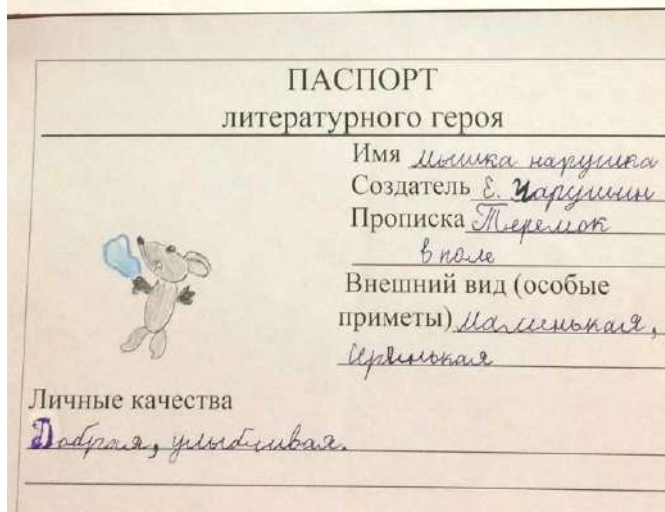 ПАСПОРТ
литературного героя
Имя мышка нарушка
Создатель Е. Чарушин
Прописка Теремок
в поле
Внешний вид (особые
приметы) маленькая,
серинькая
Личные качества
Добрая, улыбчивая.